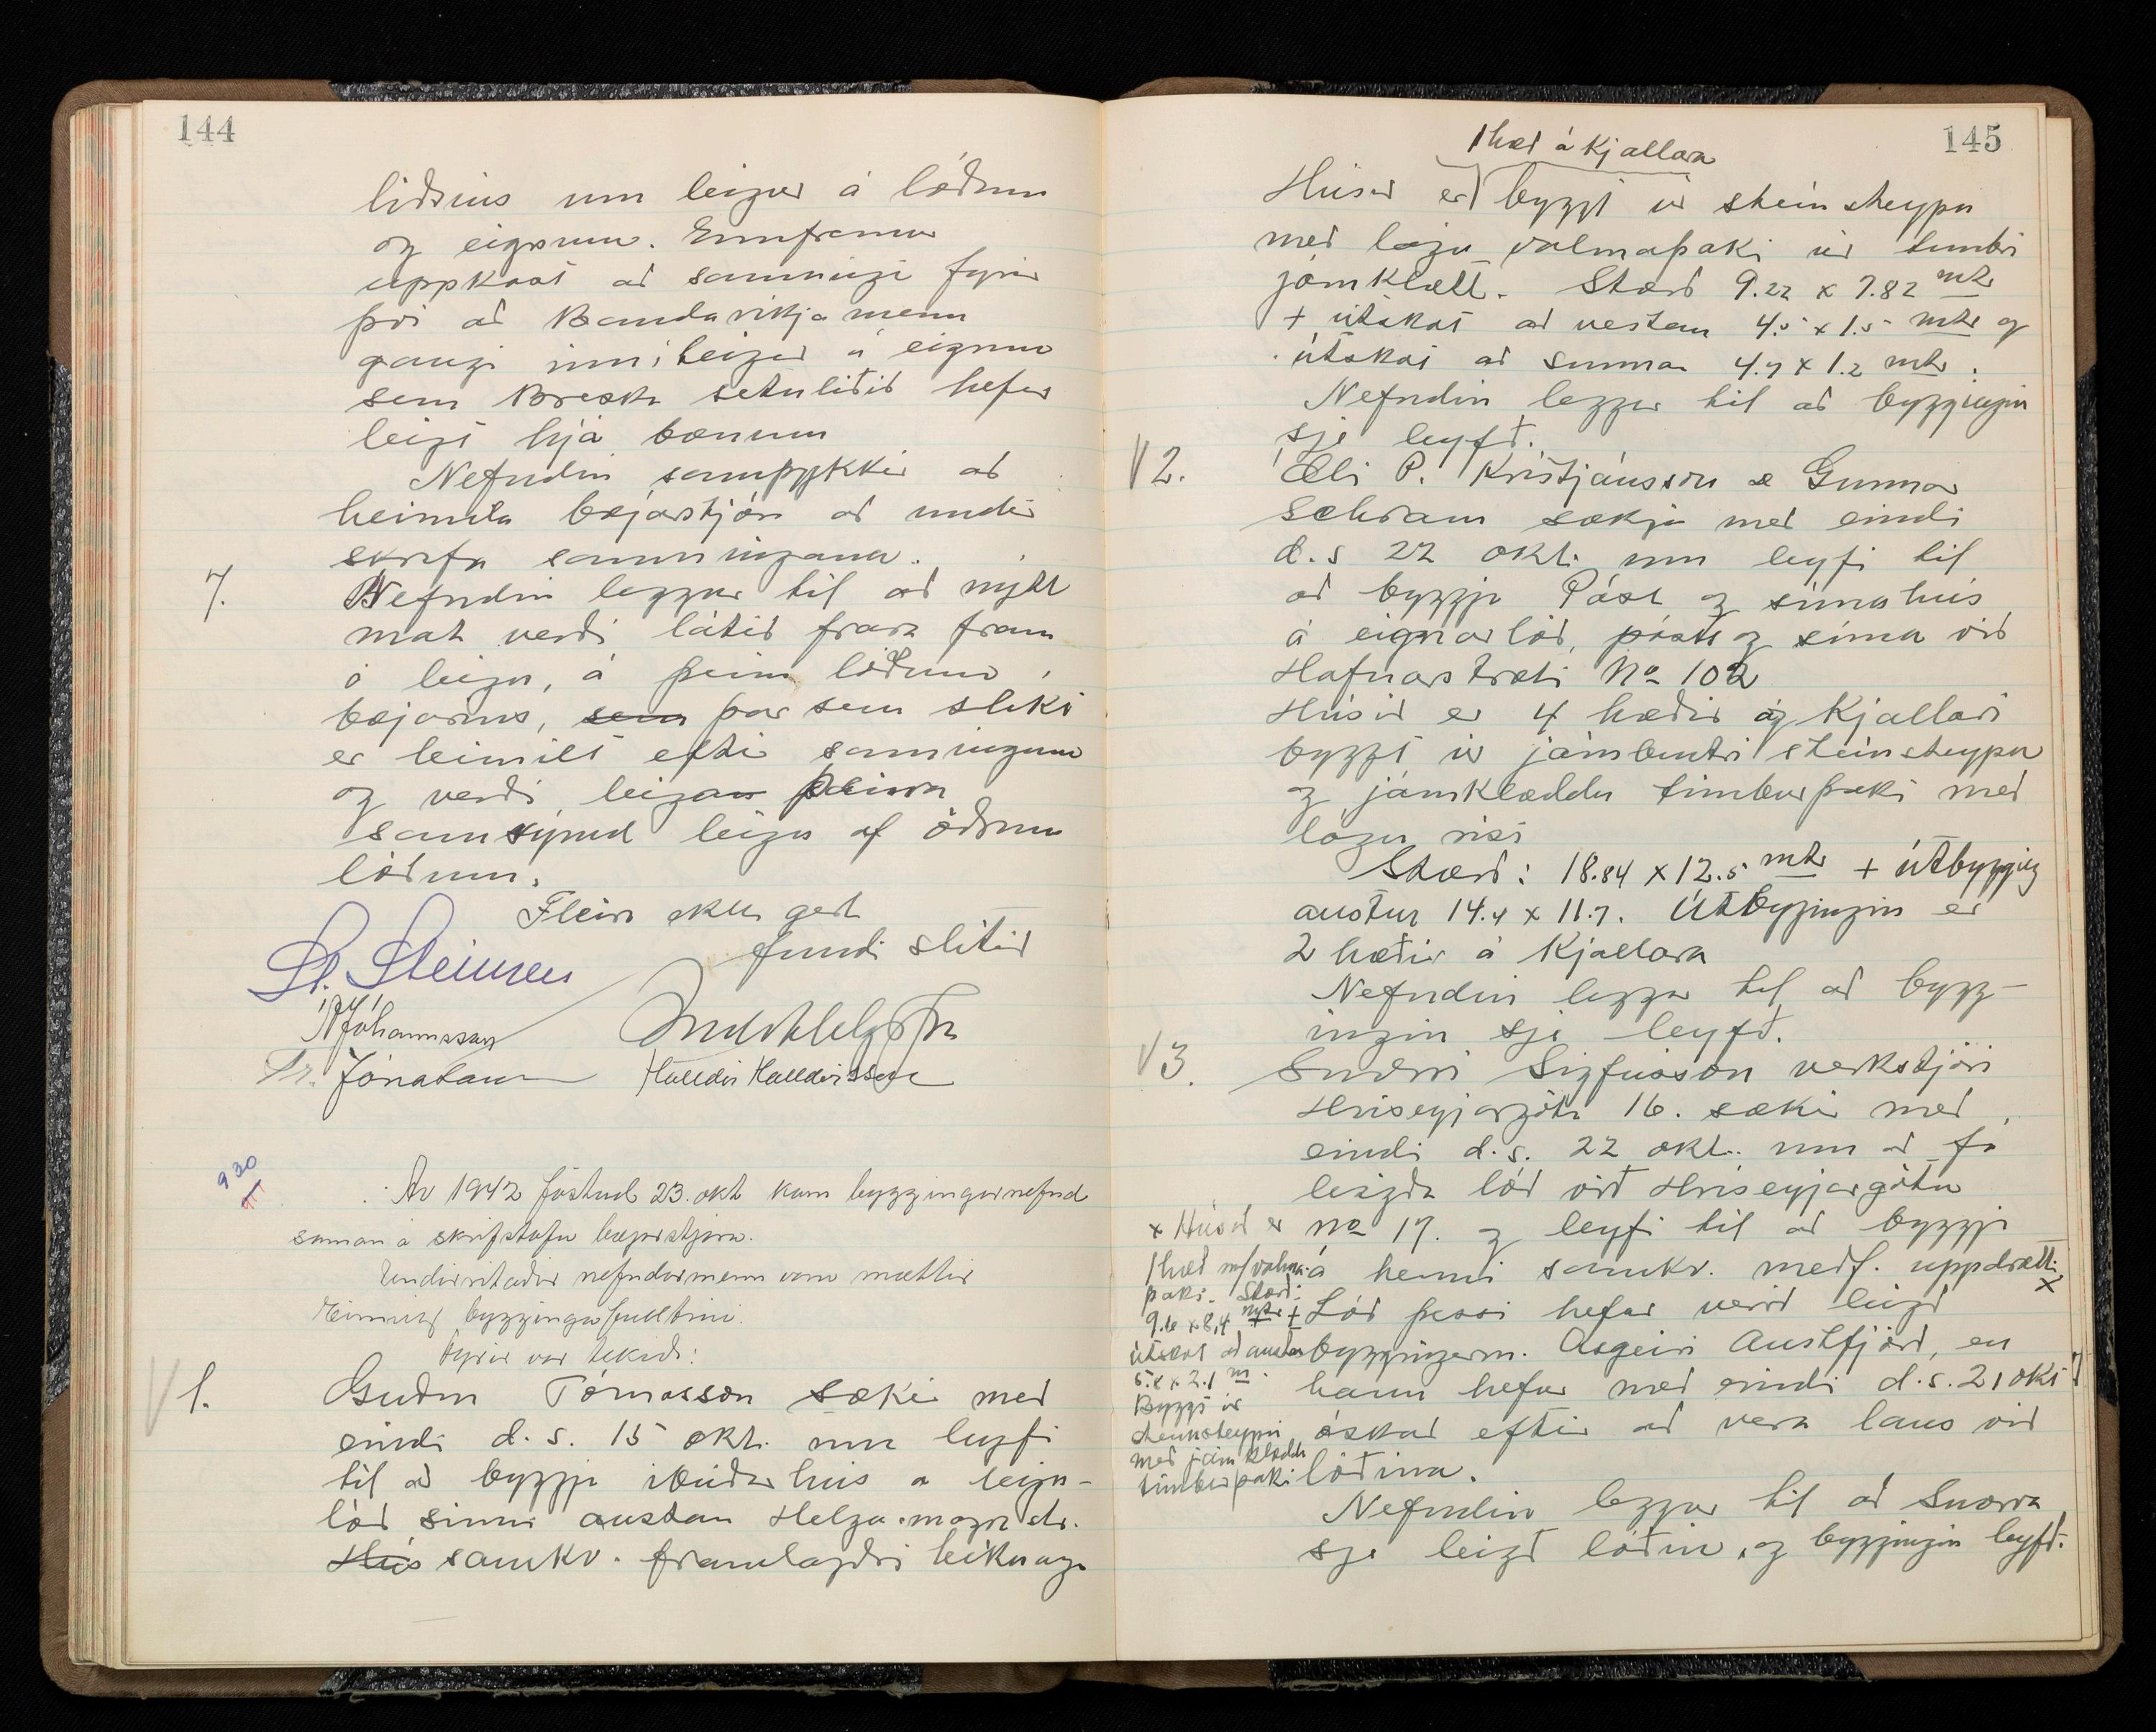 144
liðsins um leigur á lóðum
og eignum. Ennfremur
uppkast að samningi fyrir
því að Bandaríkjamenn
gangi inn í leigur á eignum
sem Breska setuliðið hefur
leigt hjá bænum
Nefndin samþykkir að
heimila bæjarstjóra að undir
skrifa samningana.
7. Nefndin leggur til að nýtt
mat verði látið fara fram
á leigu, á þeim lóðum
bæjarins, sem þar sem slíkt
er heimilt eftir samningum
og verði leigan þeirra
samrýmd leigu af öðrum
lóðum.
Fleira ekki gert
fundi slitið
St. Steinsen
Jóhannsson
Tr. Jónatansson Halldór Halldórsson
930
Ár 1942 föstud 23. okt kom byggingarnefnd
saman á skrifstofu bæjarstjóra.
Undirritaðir nefndarmenn voru mættir
Einnig byggingafulltrúi.
Fyrir var tekið:
V 1. Guðm Tómasson sækir með
erindi d.s. 15 okt. um leyfi
til að byggja íbúðarhús á leigu-
lóð sinni austan Helga-magra str.
Hús samkv. framlagðri teikningu
145
1 hæð á kjallara
Húsið er byggt úr steinsteypu
með lágu valmaþaki úr timbri
járnklætt. Stærð 9.22 x 7.82 mtr
+ útskot að vestan 4.5 x 1.5 mtr og
útskot að sunnan 4.7 x 1.2 mtr.
Nefndin leggur til að byggingin
sje leyfð.
V 2. Óli P. Kristjánsson & Gunnar
Schram sækja með erindi
d.s 22 okt. um leyfi til
að byggja Póst og símahús
á eignarlóð, pósts og síma við
Hafnarstræti No 102
Húsið er 4 hæðir og kjallari
byggt úr járnbentri steinsteypu
og járnklæddu timburþaki með
lágu risi
Stærð: 18.84 x 12.5 mtr + útbygging
austur 14.4 x 11.7. Útbyggingin er
2 hæðir á kjallara
Nefndin leggur til að bygg-
ingin sje leyfð.
V 3. Snorri Sigfússon verkstjóri
Hríseyjargötu 16. sækir með
erindi d.s. 22 okt. um að fá
leigða lóð við Hríseyjargötu
no 17. og leyfi til að byggja
á henni samkv. meðf. uppdrætti x
Lóð þessi hefur verið leigð
byggingarm. Ásgeiri Austfjörð, en
hann hefur með erindi d.s. 21 okt
óskað eftir að vera laus við
lóðina.
Nefndin leggur til að Snorra
sje leigð lóðin, og byggingin leyfð.
x Húsið er
1 hæð m/valma
þaki. Stærð:
9.6 x 8.4 mtr +
útskot að austan
5.8 x 2.1 m.
Byggt úr
steinsteypu
með járnklæddu
timburþaki